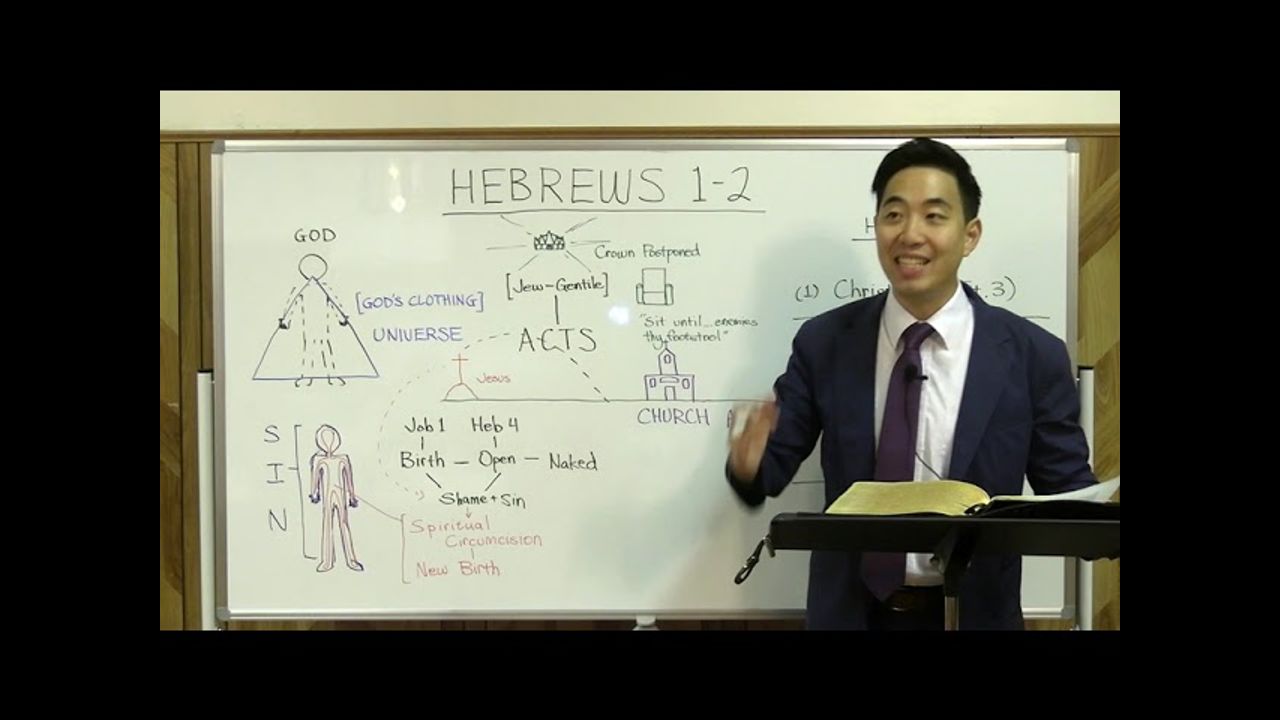 HEBREWS 1-2
GOD
[GOD'S CLOTHING]
UNIVERSE
Crown Postponed
[Jew-Gentile]
ACTS
"Sit until...enemies
thy footstool"
Jesus
CHURCH
H
(1) Chris
t. 3)
S
I
N
Job 1 Heb 4
Birth - Open - Naked
Shame + Sin
Spiritual
Circumcision
New Birth